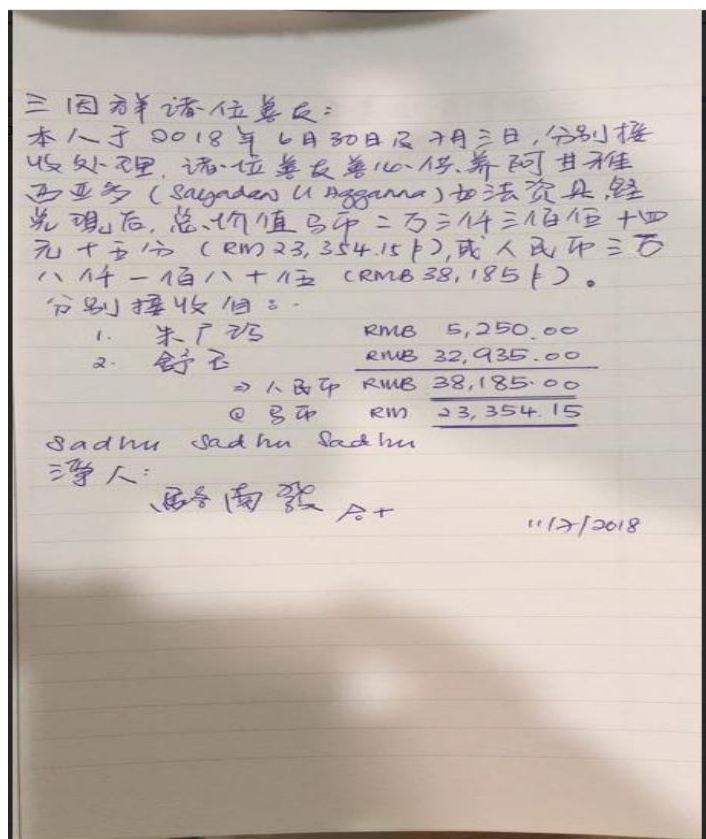 三因群诸位善友:
本人于2018年6月30日及7月三日,分别接
收处理,诸位善友善心供养阿甘雅
西亚多(Sayadaw U Aggañña)如法资具,经
兑现后,总价值马币二万三仟三佰伍十四
元十五分(RM23,354.15),或人民币三万
八仟一佰八十伍(RMB38,185)。
分别接收自:-
1. 朱广 RMB 5,250.00
2. 舒玉 RMB 32,935.00
⇒人民币 RMB 38,185.00
@ 马币 RM 23,354.15
Sadhu Sadhu Sadhu
净人:
南 发
11/7/2018